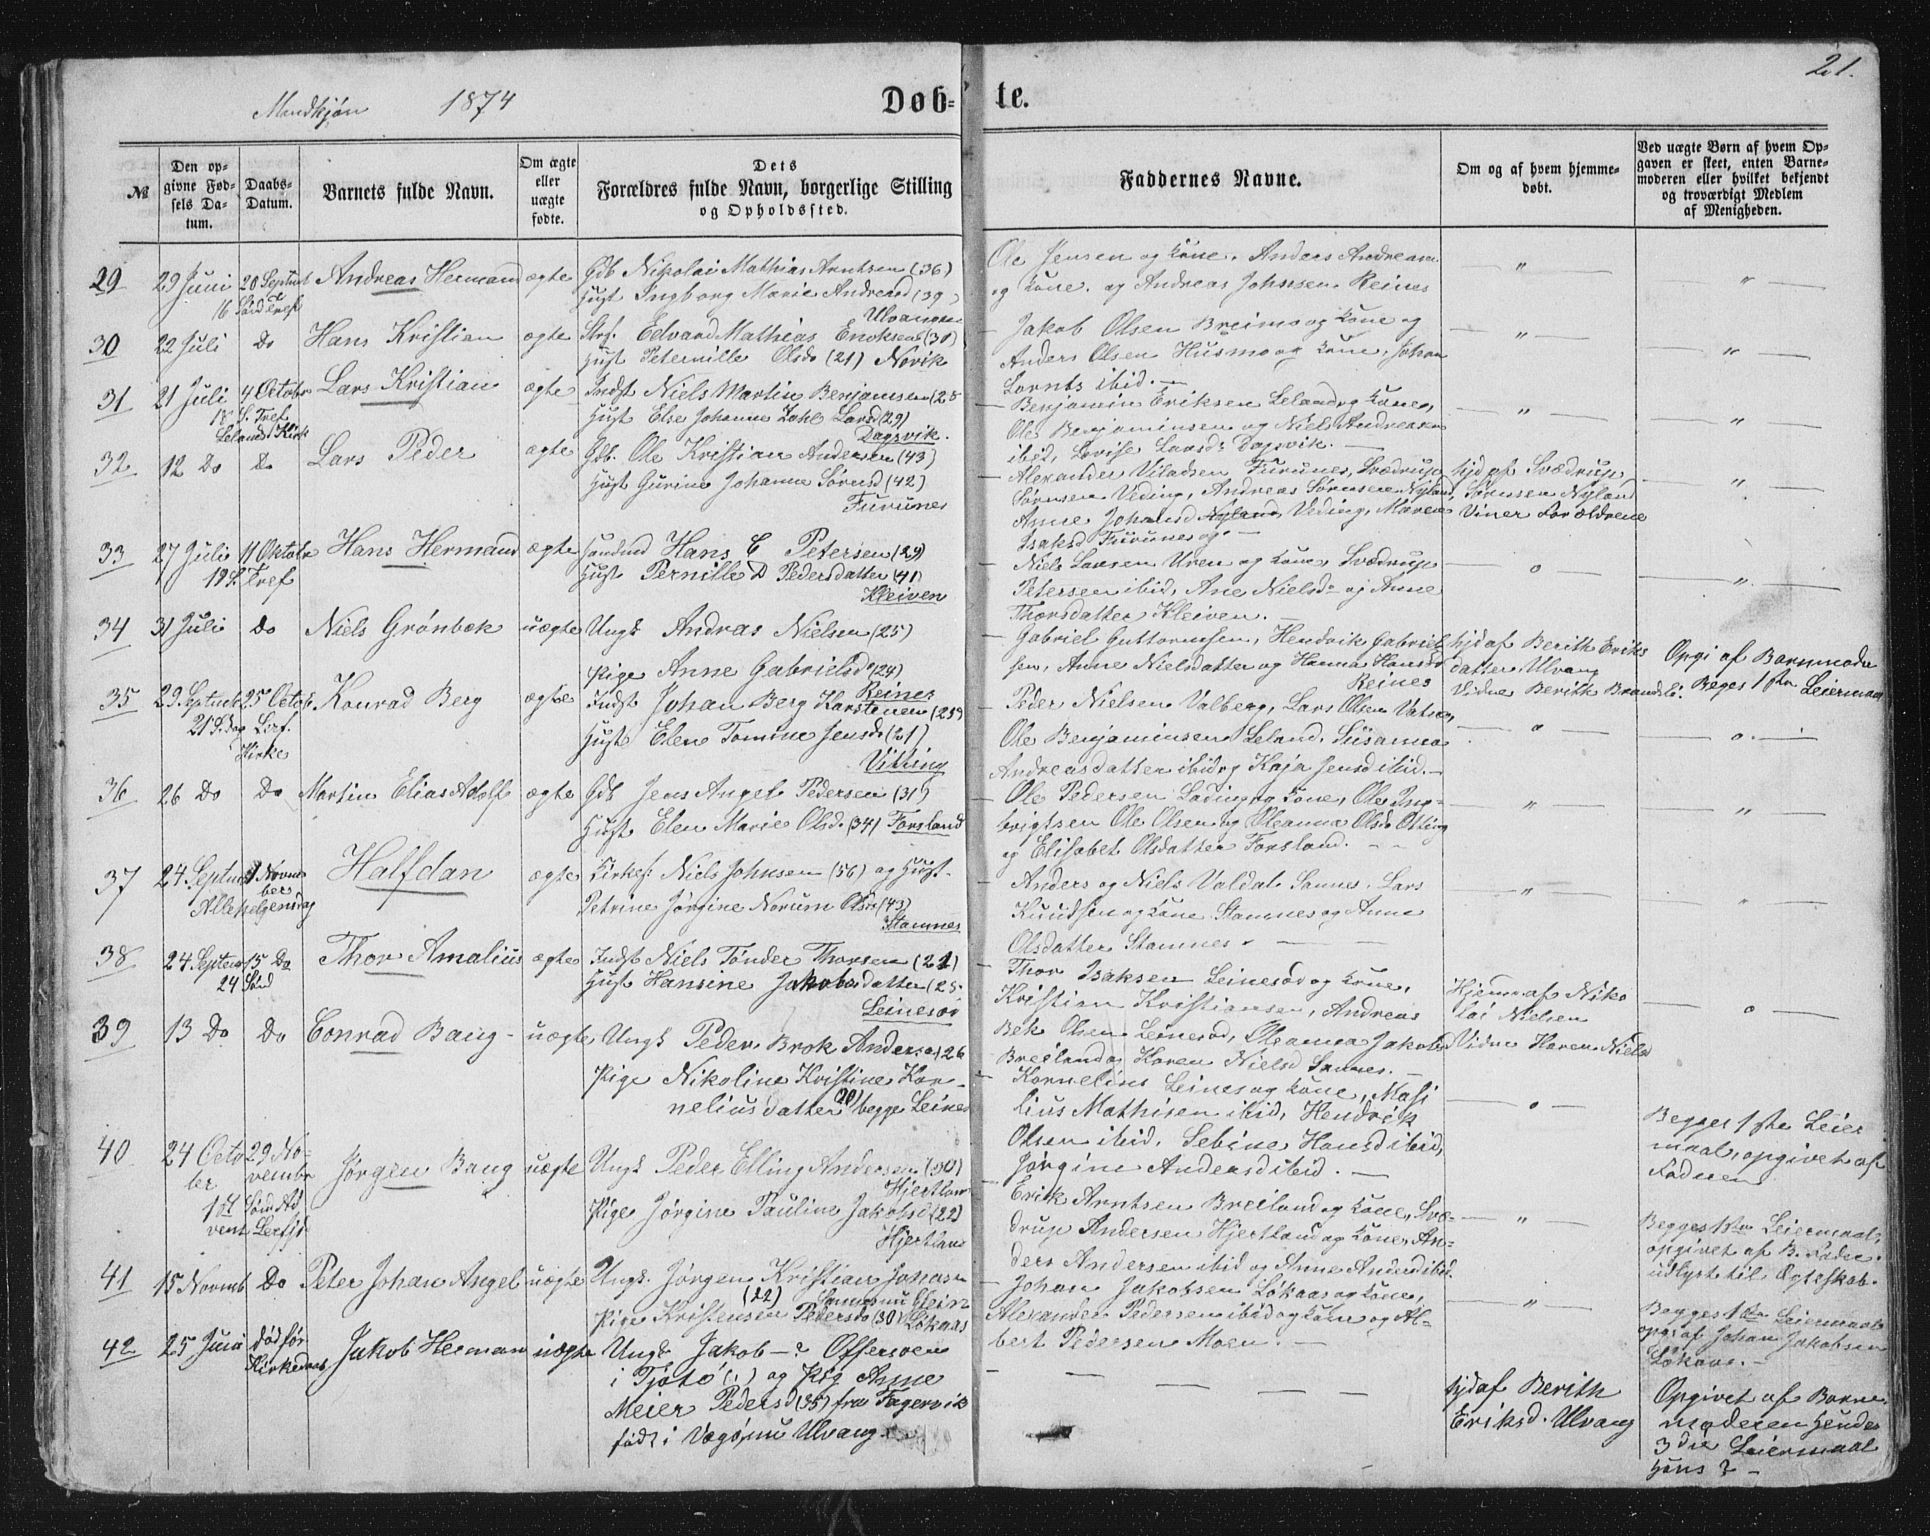 21.
Mandkjøn 1874
Døb- te.
№
Den op-
givne Fød-
sels Da-
tum.
Daabs-
Datum.
Barnets fulde Navn.
Om ægte
eller
uægte
fødte.
Dets
Forældres fulde Navn, borgerlige Stilling
og Opholdssted.
Faddernes Navne.
Om og af hvem hjemme-
døbt.
Ved uægte Børn af hvem Op-
gaven er skeet, enten Barne-
moderen eller hvilket bekjendt
og troværdigt Medlem
af Menigheden.
29 29 Juni 20 Septmb Andreas Hermand ægte Gdb Nikolai Mathias Arntsen (36)
16 Sønd Tref
Hust Ingborg Marie Andread (39)
Ulvangen
Ole Jensen og Kone, Anders Andreasen
og Kone, og Andreas Johnsen Reines
30 22 Juli Do Hans Kristian ægte Strf. Edvard Mathias Enoksen (31)
Hust Peternille Olsd (21) Norvik
Jakob Olsen Breimo og Kone og
Anders Olsen Husmo og Kone, Johan
Lornts ibid.
31 21 Juli 4 Octobr Lars Kristian ægte Indst Niels Martin Benjamsen (28
18 S. Tref
Lelands Kirk
Hust Else Johanne Zahl Larsd (29)
Dagsvik.
Benjamin Eriksen Leland og Kone,
Ole Benjaminsen og Niels Andreasen
ibid, Lovise Larsd Dagsvik.
32 12 Do Do Lars Peder ægte Gdb. Ole Kristian Andersen (43)
Hust Gurine Johanne Sørensd (42)
Furunes
Alexander Viladsen Furunes, Svædrup
Sørensen Veding, Andreas Sørensen Nyland,
Anne Johansd Nyland Veding, Maren
Isaksd Furunes og
Hjd af Svædrup
Sørensen Nyland
Viner Forældrene
33 27 Juli 11 Oktobr Hans Hermand ægte Hans C Petersen (29)
19 S. Tref
Hust Pernille D Pedersdatter (41)
Kleiven
Niels Larsen Uren og Kone, Svædrup
Petersen ibid, Ane Nielsd og Anne
Thorsdatter Kleiven.
34 31 Juli Do Niels Grønbek uægte Ungk Andreas Nielsen (25)
Pige Anne Gabrielsd (24)
Reines
Gabriel Guttormsen, Hendrik Gabriel
sen, Anne Nielsdatter og Hanna Hansd
Reines
Hjd af Berith Eriks
datter Ulvang
Vidne Berith
Opgi af Barnmoder
Beges 1ste Leiermaal
35 29 Septmb 25 Octob Konrad Berg ægte Indst Johan Berg Karstensen (25)
21 S. Lerf.
Kirke
Hust Elen Tomine Jensd (21)
Vitting
Peder Nielsen Valberg, Lars Olsen Vatne,
Ole Benjaminsen Leland. Susanna
Andreasdatter ibid og Kaja Jensd ibid.
36 26 Do Do Martin Elias Adolf ægte Gdb Jens Angel Pedersen (31)
Hust Elen Marie Olsd. (34) Forsland
Ole Pedersen Lading og Kone, Ole Ing-
brigtsen Ole Olsen og Oleanna Olsd
og Elisabet Olsdatter Forsland.
37 24 Septmb 1 Novm Halfdan ægte Kirkes. Niels Johnsen (56) og Hust
ber
Allehelgensdag
Petrine Jørgine Norum Olsd (43)
Stamnes
Anders og Niels Valdal Sannes. Lars
Knudsen og Kone Stamnes og Anne
Olsdatter Stamnes
38 24 Septem 15 Do Thor Amalius ægte Indst Niels Tønder Thorsen (21)
24 Sønd
Hust Hansine Jakobsdatter (25
Leinesør
Thor Isaksen Leinesød og Kone,
Kristian Kristiansen, Andreas
Bek Olsen Leinesød, Oleanna Jakobsd
Breiland og Karen Nielsd Sannes.
Hjem af Niko
lai Nielsen
Vidne Karen Nielsd
39 13 Do Do Conrad Bang uægte Ungk Peder Brok Anders 26
Pige Nikoline Kristine Kor-
nelius datter (20) begge Leines
Kornelius Leines og Kone, Masi
lius Mathisen ibid, Hendrik
Olsen ibid, Sebine Hansd ibid,
Jørgine Andersd ibid.
Begges 1ste Leier
maal, opgivet af
Faderen
40 24 Octo 29 No- Jørgen Bang uægte Ungk Peder Elling Andersen (30)
ber vembr
1ste Sønd Ad
vent
Hjertland
Pige Jørgine Pauline Jakobsd (22)
Hjertland
Erik Arntsen Breiland og Kone, Svæ-
drup Andersen Hjertland og Kone, An-
ders Andersen ibid og Anne Andersd ibid.
Begges 1ste Leiermaal
opgivet af B. Fader.
udlyst til Ægteskab.
41 15 Novmb Do Peter Johan Angel uægte Ungk. Jørgen Kristian Johans
(22)
Pige Kristensen Pedersd (30) Løkaas
Johan Jakobsen Løkaas og Kone,
Alexander Pedersen ibid og Kone og Al-
bert Pedersen Moen.
Begges 1ste Leiermaal
opg: af Johan Jakobsen
Løkaas.
42 25 Juni død før Jakob Herman uægte Ungk Jakob ? Offersøen
Kirkedaab
i Tjøtø ( , ) og Pig Anne
Meier Pedersd (35) fra Fagervik
født i Vægø, nu Ulvang
Hjd af Berith
Eriksd. Ulvang
Opgivet af Barne
moderen Hendes
3die Leiermaal
Hans ?